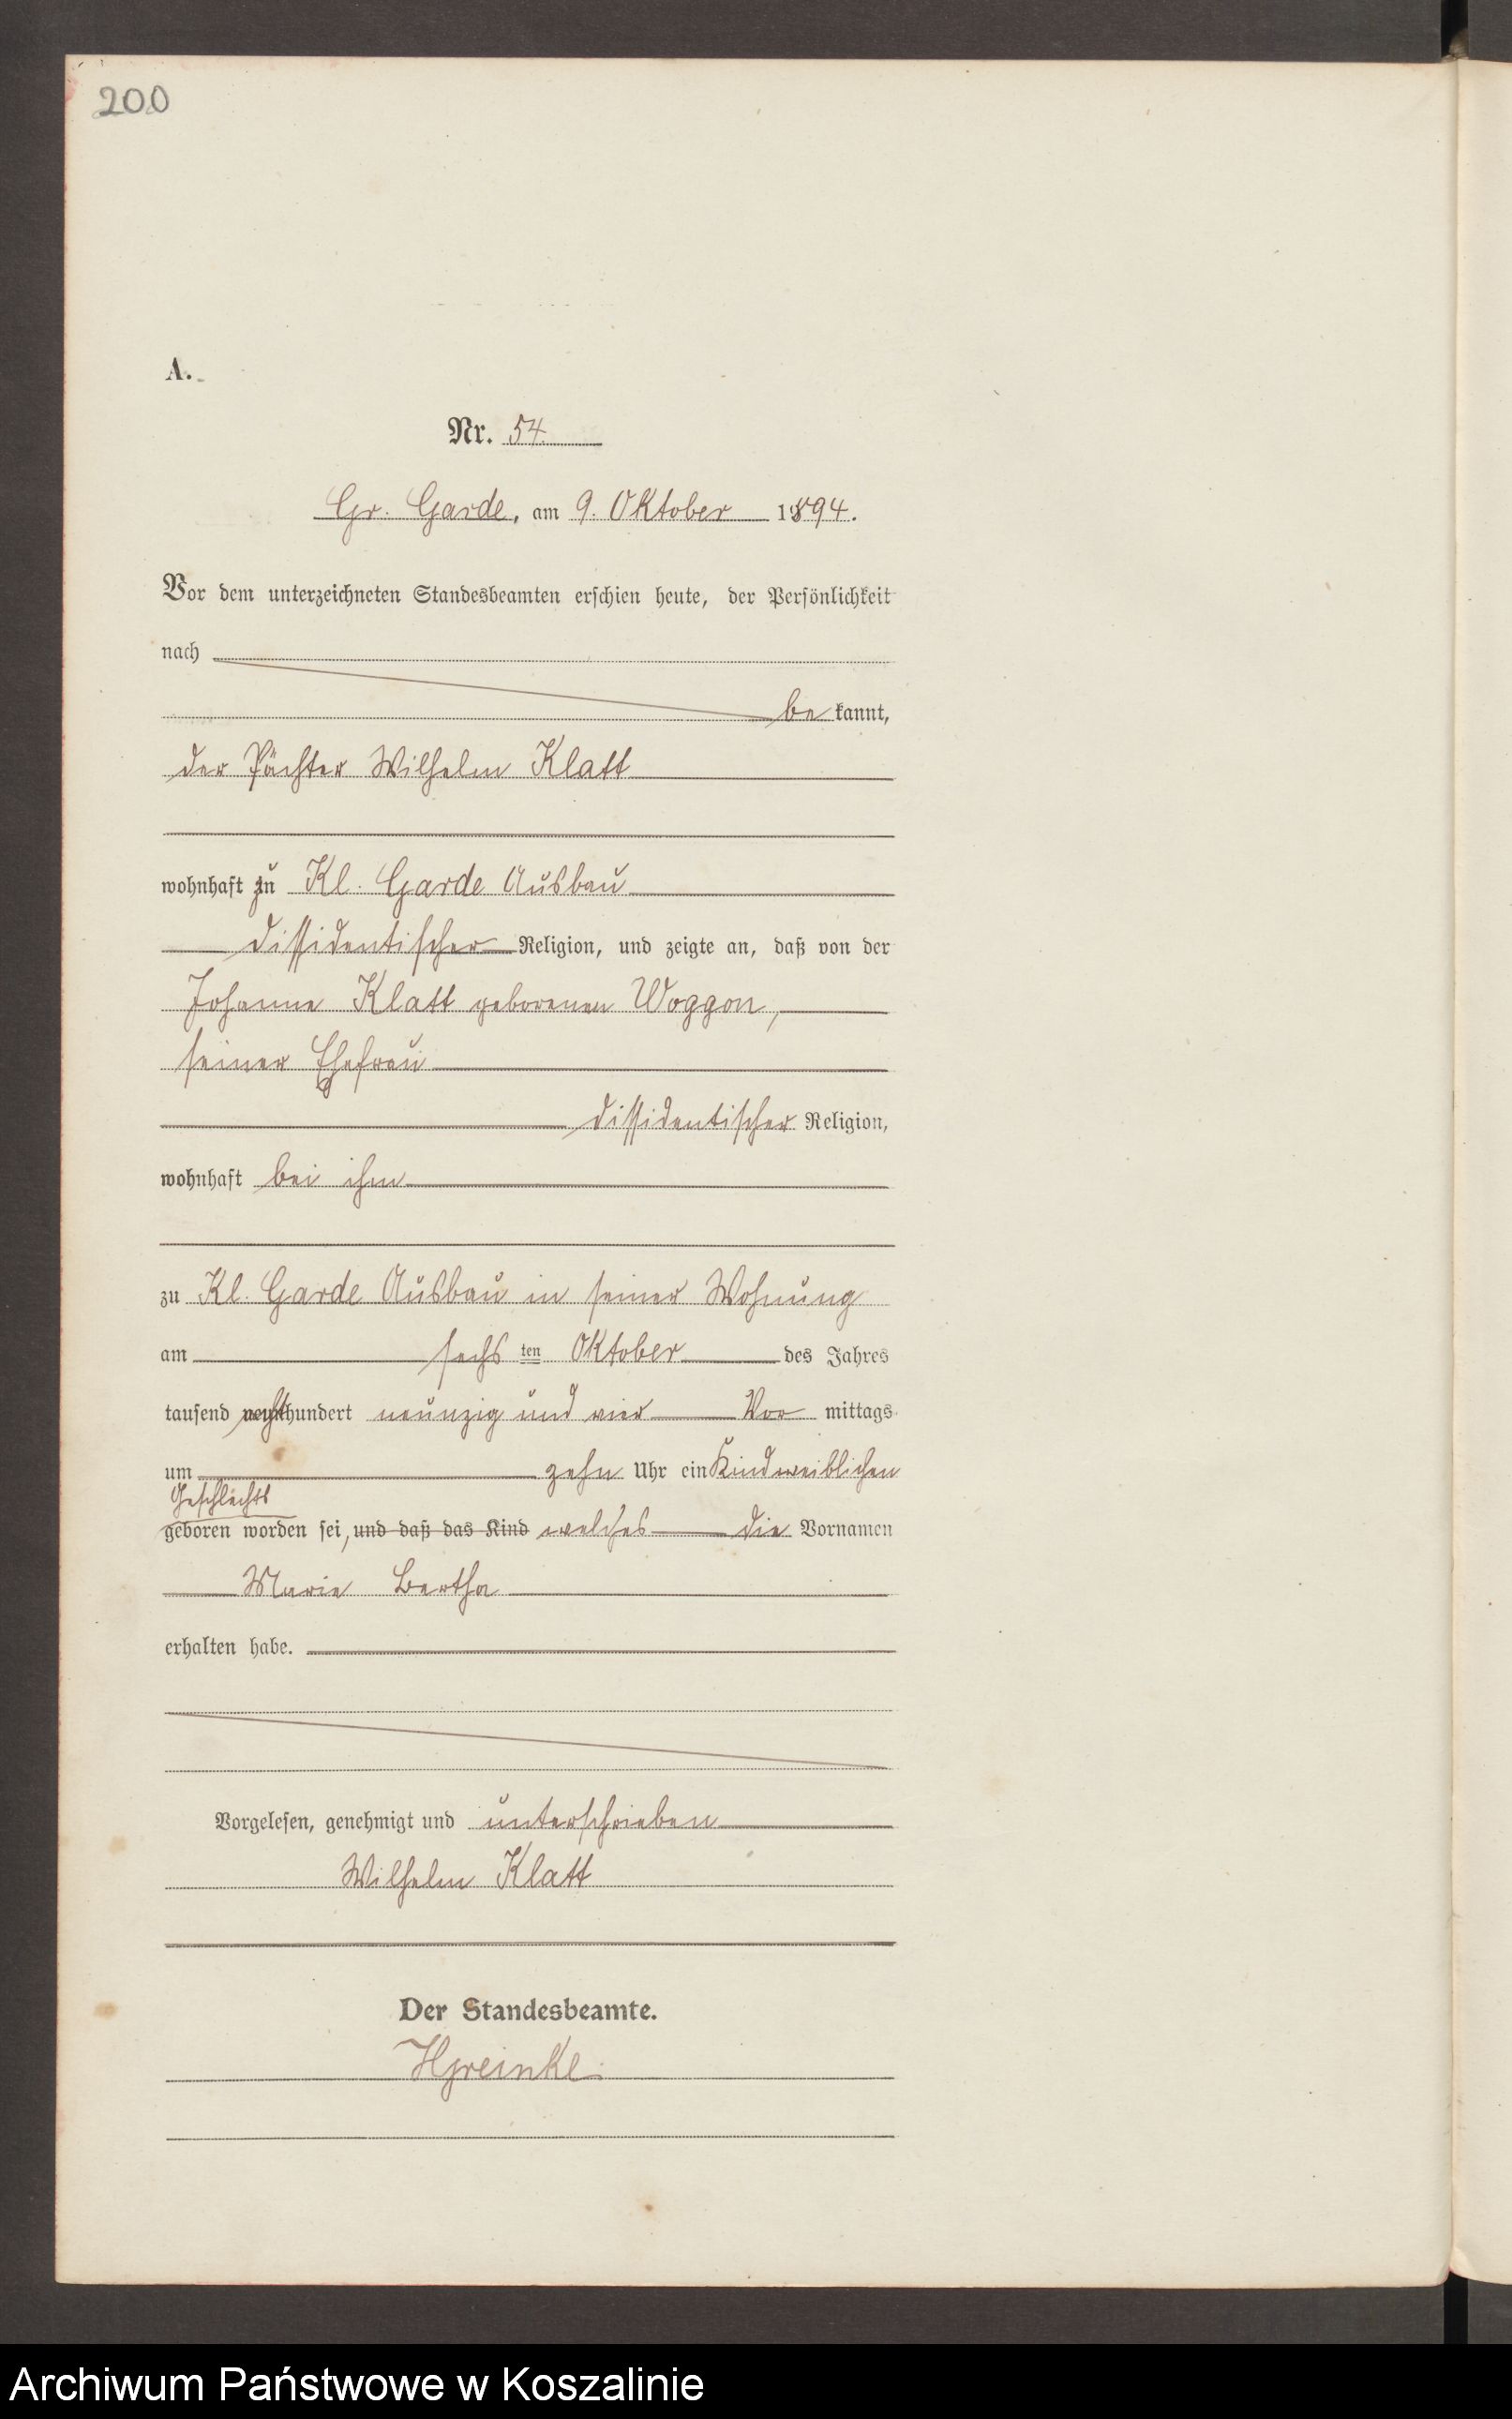 200
A.
Nr. 54.
Gr. Garde, am 9. Oktober 1894.
Vor dem unterzeichneten Standesbeamten erschien heute, der Persönlichkeit
nach
be kannt,
der Pächter Wilhelm Klatt
wohnhaft zu Kl. Garde Ausbau
dissidentischer Religion, und zeigte an, daß von der
Johanne Klatt geborenen Woggon,
seiner Ehefrau
dissidentischer Religion,
wohnhaft bei ihm
zu Kl. Garde Ausbau in seiner Wohnung
am sechs ten Oktober des Jahres
tausend achthundert neunzig und vier Vor mittags
um zehn Uhr ein Kind weiblichen
Geschlechts
geboren worden sei, und daß das Kind welches die Vornamen
Marie Bertha
erhalten habe.
Vorgelesen, genehmigt und unterschrieben
Wilhelm Klatt
Der Standesbeamte.
Archiwum Państwowe w Koszalinie